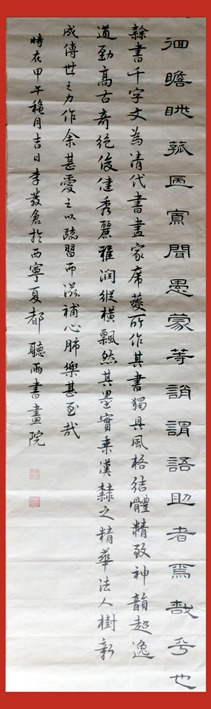 徊瞻眺孤陋寡聞愚蒙等誚謂語助者焉哉乎也
隸書千字文為清代書畫家席夔所作其書獨具風格結體精致神韻超逸
道勁高古奇絕俊健秀麗雅潤縱橫飄然其墨實秉漢隸之精華法人樹新
成傳世之力作余甚愛之以臨習而滋補心肺樂甚至哉
時在甲午穐月吉日李發倉於西寧夏都聽雨書畫院